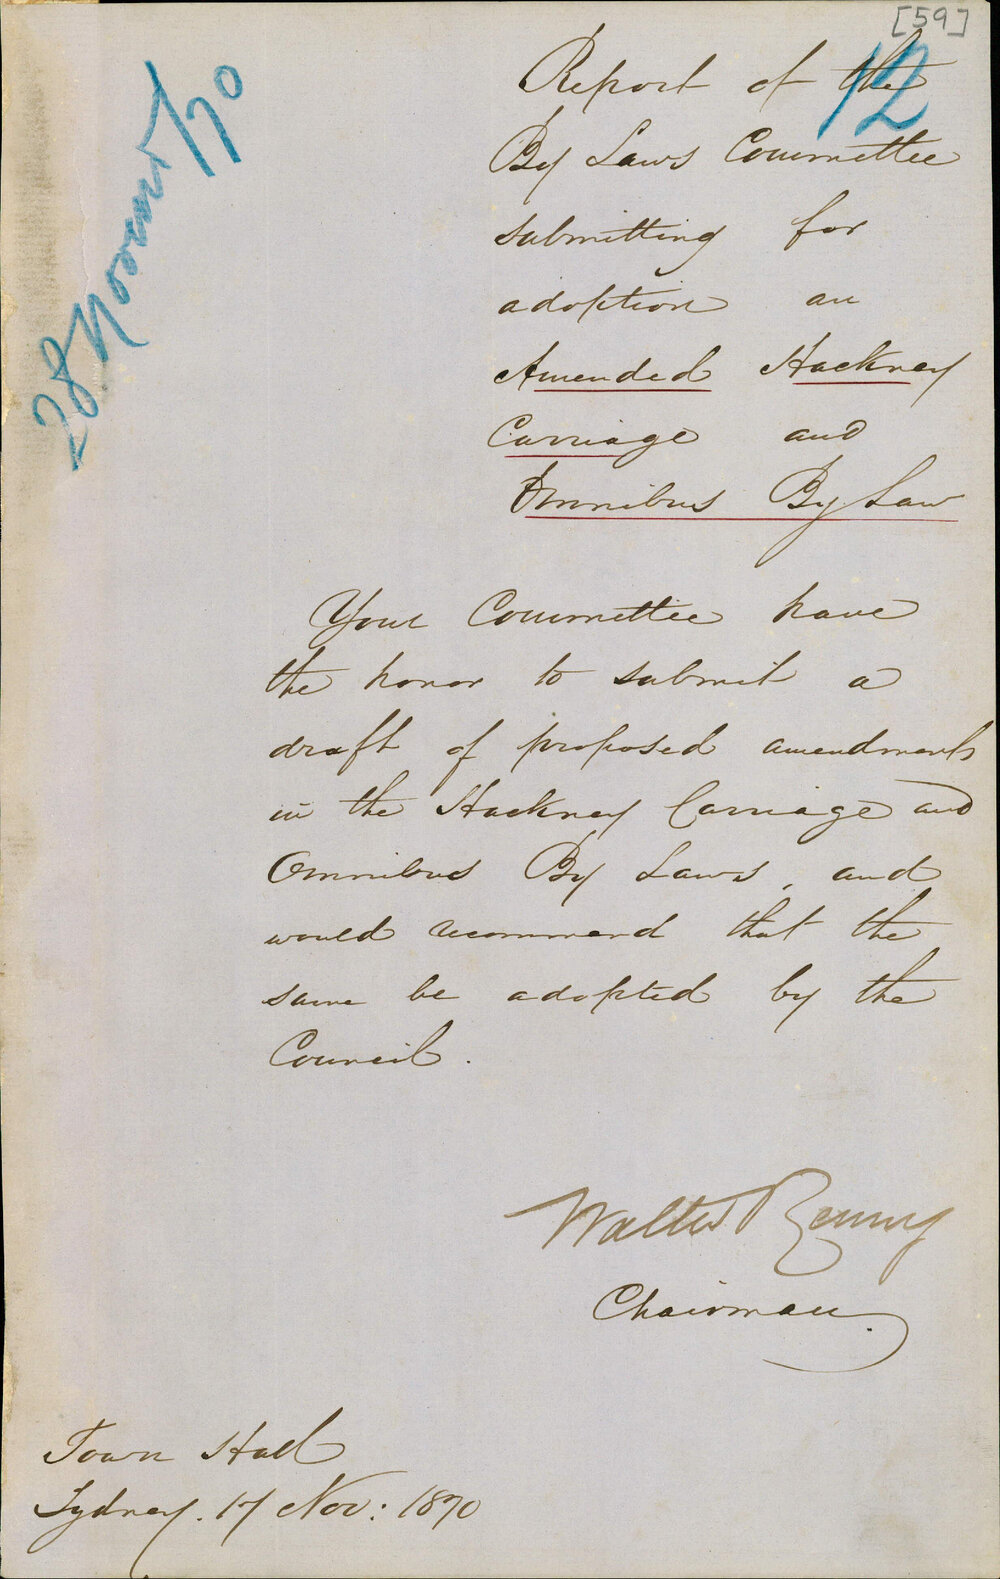 [59]
12
28 Novemr/70
Report of the
By Laws Committee
submitting for
adoption an
Amended Hackney
Carriage and
Omnibus By Law
Your Committee have
the honor to submit a
draft of proposed amendments
in the Hackney Carriage and
Omnibus By Laws, and
would recommend that the
same be adopted by the
Council.
Walter Renny
Chairman.
Town Hall
Sydney. 17 Nov: 1870